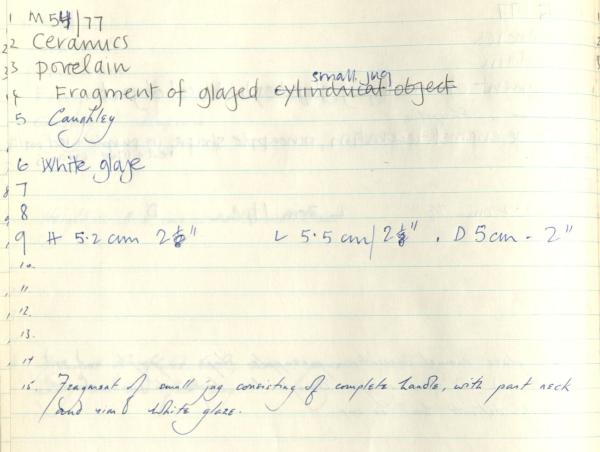 1 M54/77
2 Ceramics
3 porcelain
4 Fragment of glazed cylindrical object small jug
5 Caughley
6 White glaze
7
8
9 H 5.2 cm 2 " L 5.5 cm/2 " . D 5cm - 2"
10.
11.
12.
13.
14
15 Fragment of small jug consisting of complete handle, with part neck
and rim White glaze.